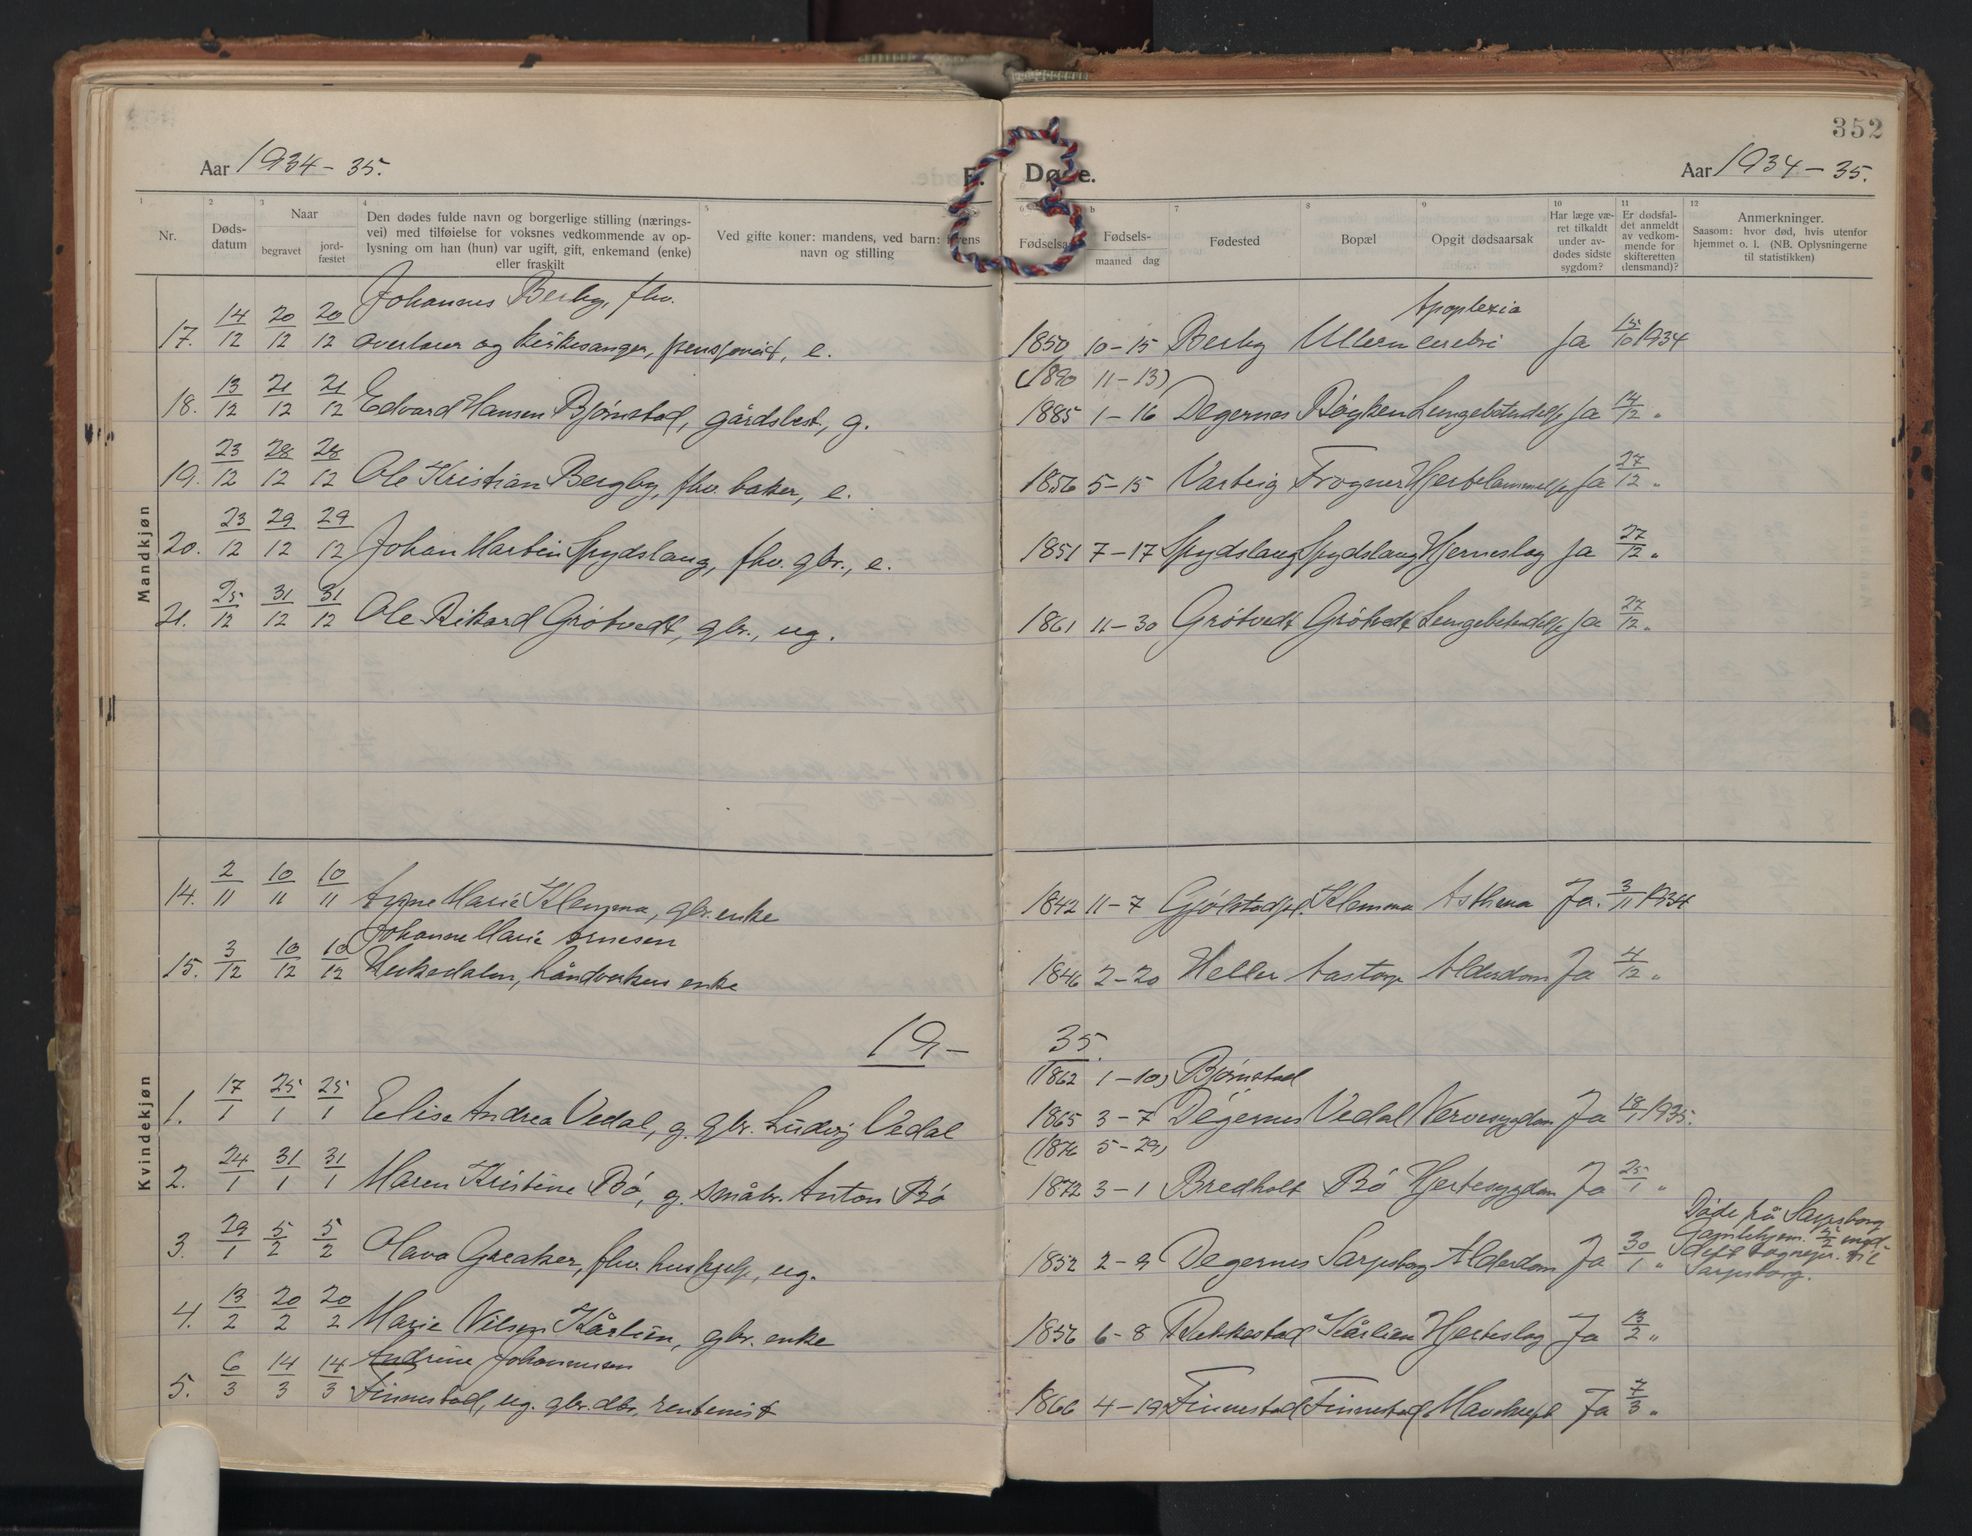 352
Aar 1934-35.
F. Døde.
Aar 1934-35.
1 2 3 4 5 6 7 8 9 10 11 12
Nr.
Døds-
datum
Naar
begravet
jord-
fæstet
Den dødes fulde navn og borgerlige stilling (nærings-
vei) med tilføielse for voksnes vedkommende av op-
lysning om han (hun) var ugift, gift, enkemand (enke)
eller fraskilt
Ved gifte koner: mandens, ved barn:
navn og stilling
Fødsels-
maaned dag
Fødested
Bopæl
Opgit dødsaarsak
Har læge væ-
ret tilkaldt
under av-
dødes sidste
sygdom?
Er dødsfal-
det anmeldt
av vedkom-
mende for
skifteretten
(lensmand)?
Anmerkninger.
Saasom: hvor død, hvis utenfor
hjemmet o. l. (NB. Oplysningerne
til statistikken)
Mandkjøn
Johannes Berby, fhv.
Apoplexia
17. 14/12 20/12 20/12 overlærer og kirkesanger, e. 1850 10-15 Berby Ullern cerebri Ja 15/10 1934
(1890 11-13)
18. 13/12 21/12 21/12 Edvard Hansen Bjørnstad, gårdsbest., g. 1885 1-16 Degernes Røyken Lungebetendelse Ja 14/12 "
19. 23/12 28/12 28/12 Ole Kristian Bergby, fhv. baker, e. 1856 5-15 Varteig Frogner Hjertelammelse Ja 27/12 "
20. 23/12 29/12 29/12 Johan Martin Spydslaug, fhv. gbr., e. 1851 7-17 Spydslaug Spydslaug Hjerneslag Ja 27/12 "
21. 25/12 31/12 31/12 Ole Rikard Grøtvedt, gbr., ug. 1861 11-30 Grøtvedt Grøtvedt Lungebetendelse Ja 27/12 "
Kvindekjøn
14. 2/11 10/11 10/11 Agne Marie Klemma, gbr. enke 1842 11-7 Gjølstadpl. Klemma Asthma Ja. 3/11 1934
Johanne Marie Arnesen
15. 3/12 10/12 10/12 håndverkers enke 1846 2-20 Heller Aastorp Alderdom Ja 4/12 "
19-35.
(1862 1-10) Bjørnstad
1. 17/1 25/1 25/1 Elise Andrea Vedal, g. gbr. Ludvig Vedal 1865 3-7 Degernes Vedal Nervesygdom Ja 18/1 1935.
(1876 5-29)
2. 24/1 31/1 31/1 Maren Kristine Bø, g. småbr. Anton Bø 1872 3-1 Bredholt Bø Hjertesygdom Ja 25/1 "
3. 29/1 5/2 5/2 Olava Greaker, fhv. hushjelp, ug. 1852 2-9 Degernes Sarpsborg Alderdom Ja 30/1 "
Døde på Sarpsborg
Gamlehjem. 5/2 med-
delt sognepr. til
Sarpsborg.
4. 13/2 20/2 20/2 Marie Nilsen Kårlien, gbr. enke 1856 6-8 Rakkestad Kårlien Hjerteslag Ja 13/2 "
Andrine Johannesen
5. 6/3 14/3 14/3 Finnestad, ug. gbr. dtr., rentenist 1866 4-19 Finnestad Finnestad Mavekreft Ja 7/3 "